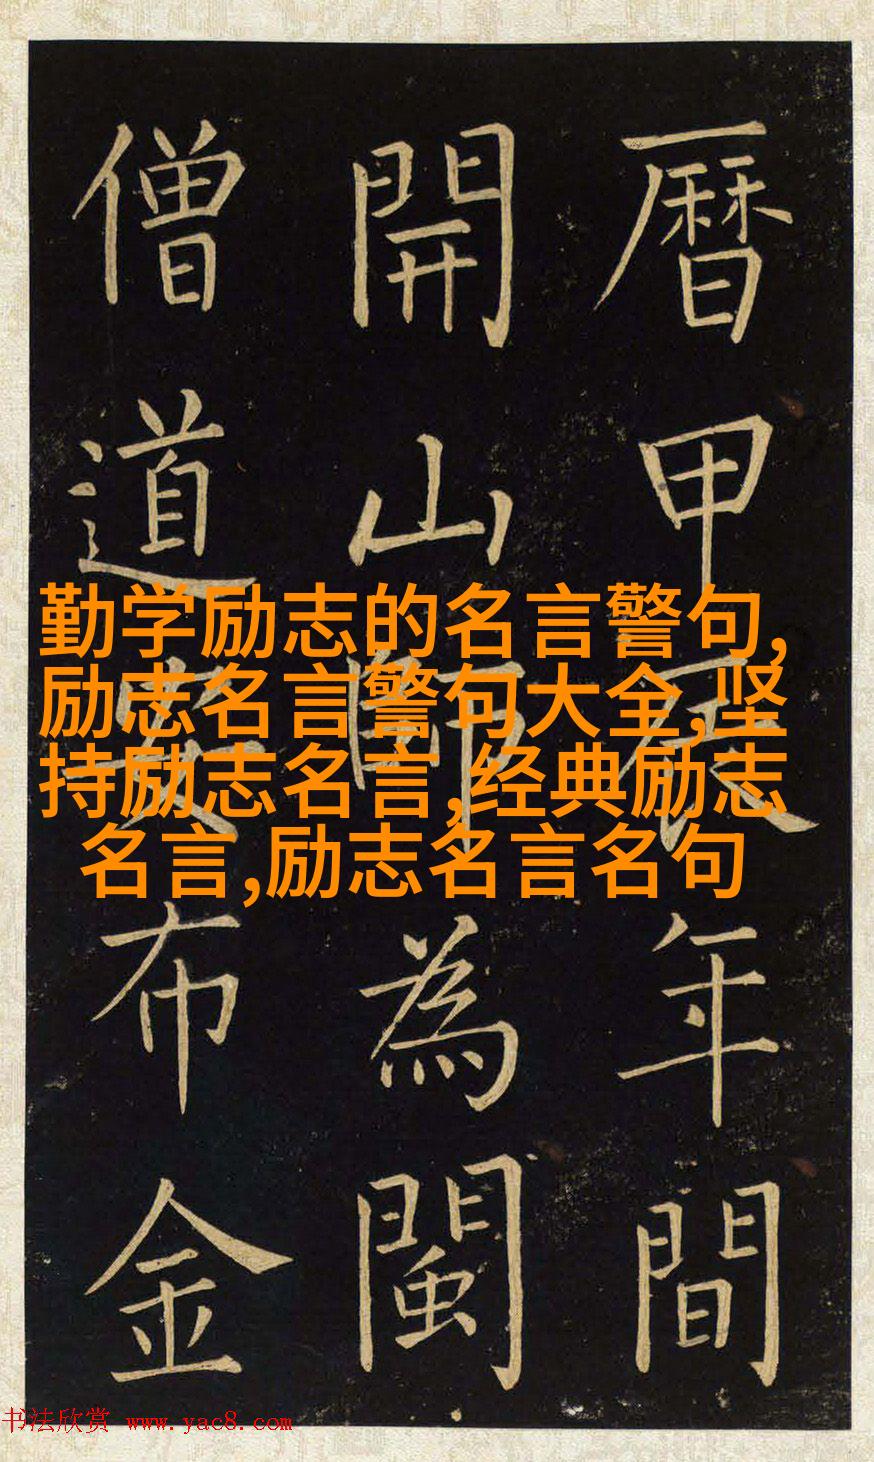 曆甲辰年間
開山師為閩
僧道布金
勤学励志的名言警句,
励志名言警句大全,坚
持励志名言,经典励志
名言,励志名言名句
书法欣赏 www.yac8.com